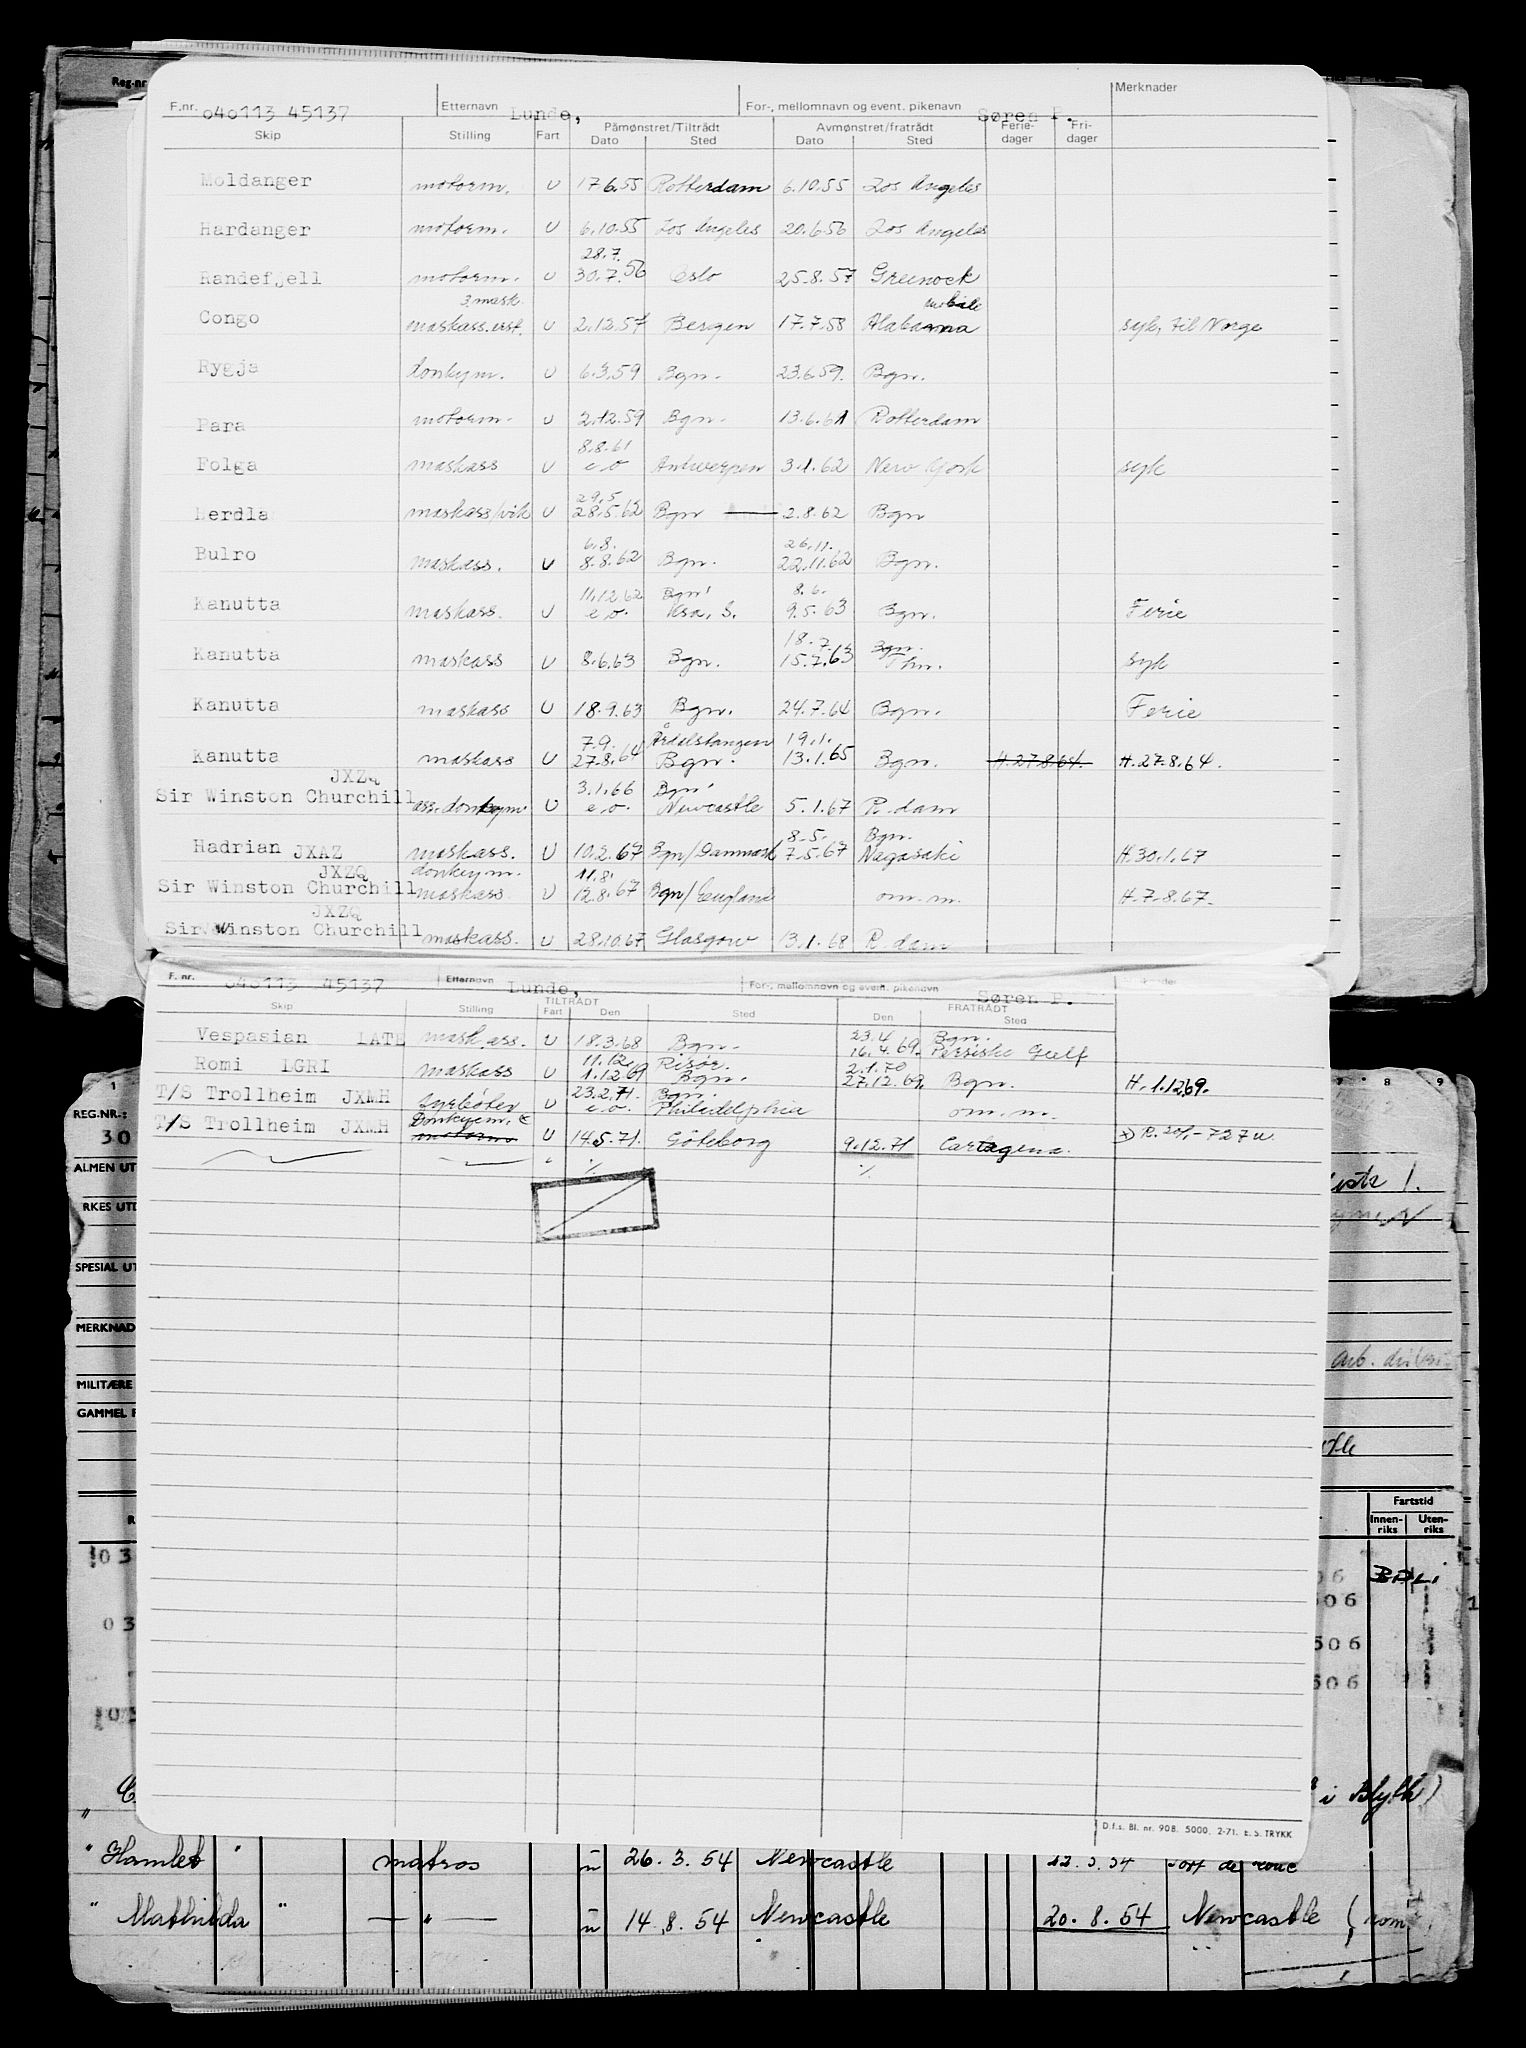 Reg-nr
Merknader
F.nr. 040113 45137 Etternavn Lunde, For-, mellomnavn og event. pikenavn Søren P.
Skip Stilling Fart Påmønstret/Tiltrådt Dato Sted Avmønstret/fratrådt Dato Sted Ferie-dager Fri-dager
Moldanger motorm. U 17.6.55 Rotterdam 6.10.55 Los Angeles
Hardanger motorm. U 6.10.55 Los Angeles 20.6.56 Los Angeles
28.7.
Randefjell motorm. U 30.7.56 Oslo 25.8.57 Greenock
3 mask. mobile
Congo maskass.erst. U 2.12.57 Bergen 17.7.58 Alabama syk, til Norge
Rygja donkeym. U 6.3.59 Bgn. 23.6.59. Bgn.
Para motorm. U 2.12.59 Bgn. 13.6.61 Rotterdam
8.8.61
Folga maskass U e.o Antwerpen 3.1.62 New York syk
29.5
Lerdla maskass/vik U 28.5.62 Bgn 2.8.62 Bgn
6.8. 26.11.
Bulro maskass. U 8.8.62 Bgn. 22.11.62 Bgn.
11.12.62 Bgn 8.6.
Kanutta maskass. U e.o. 9.5.63 Bgn. Ferie
18.7. Bgn.
Kanutta maskass U 8.6.63 Bgn. 15.7.63 Thm. syk
Kanutta maskass U 18.9.63 Bgn. 24.7.64 Bgn. Ferie
7.9. Årdalstangen 19.1.
Kanutta maskass U 27.8.64 Bgn. 13.1.65 Bgn. H.27.8.64. H.27.8.64.
JXZQ 3.1.66 Bgn
Sir Winston Churchill ass.donkeym. U e.o. Newcastle 5.1.67 R.dam
8.5. Bgn.
Hadrian JXAZ maskass. U 10.2.67 Bgn/Danmark 7.5.67 Nagasaki H.30.1.67
JXZQ donkeym. 11.8.
Sir Winston Churchill maskass. U 12.8.67 Bgn/England om.m. H.7.8.67.
JXZQ
Sir Winston Churchill maskass. U 28.10.67 Glasgow 13.1.68 R.dam
F. nr. 040113 45137 Etternavn Lunde, For-, mellomnavn og event. pikenavn Søren P.
Skip Stilling Fart TILTRÅDT Den Sted Den FRATRÅDT Sted
23.4 Bgn.
Vespasian LATE mask.ass. U 18.3.68 Bgn. 16.4.69. Persiske Gulf
11.12. Risør. 2.1.70
Romi LGRI maskass U 1.12.69 Bgn. 27.12.69. Bgn. H.1.12.69.
23.2.71. Bgn.
T/S Trollheim JXMH fyrbøter U e.o. Philadelphia om.m.
Donkeym.
T/S Trollheim JXMH motorm. U 14.5.71. Göteborg 9.12.71 Cartagena. x) R.201,-727u.
D.f.s. Bl. nr. 908. 5000. 2-71. E. S. TRYKK
1 7 8 9
REG.NR.:
30
ALMEN UT
RKES UTD
SPESIAL UT
MERKNAD
MILITÆRE
GAMMEL F
Arb.
Fartstid
Innen-riks Uten-riks
03
03
506
506
506
i Blyth)
" Hamlet " matros u 26.3.54 Newcastle 12.5.54 Port de
" Mathilda " — " — u 14.8.54 Newcastle 20.8.54 Newcastle (rom